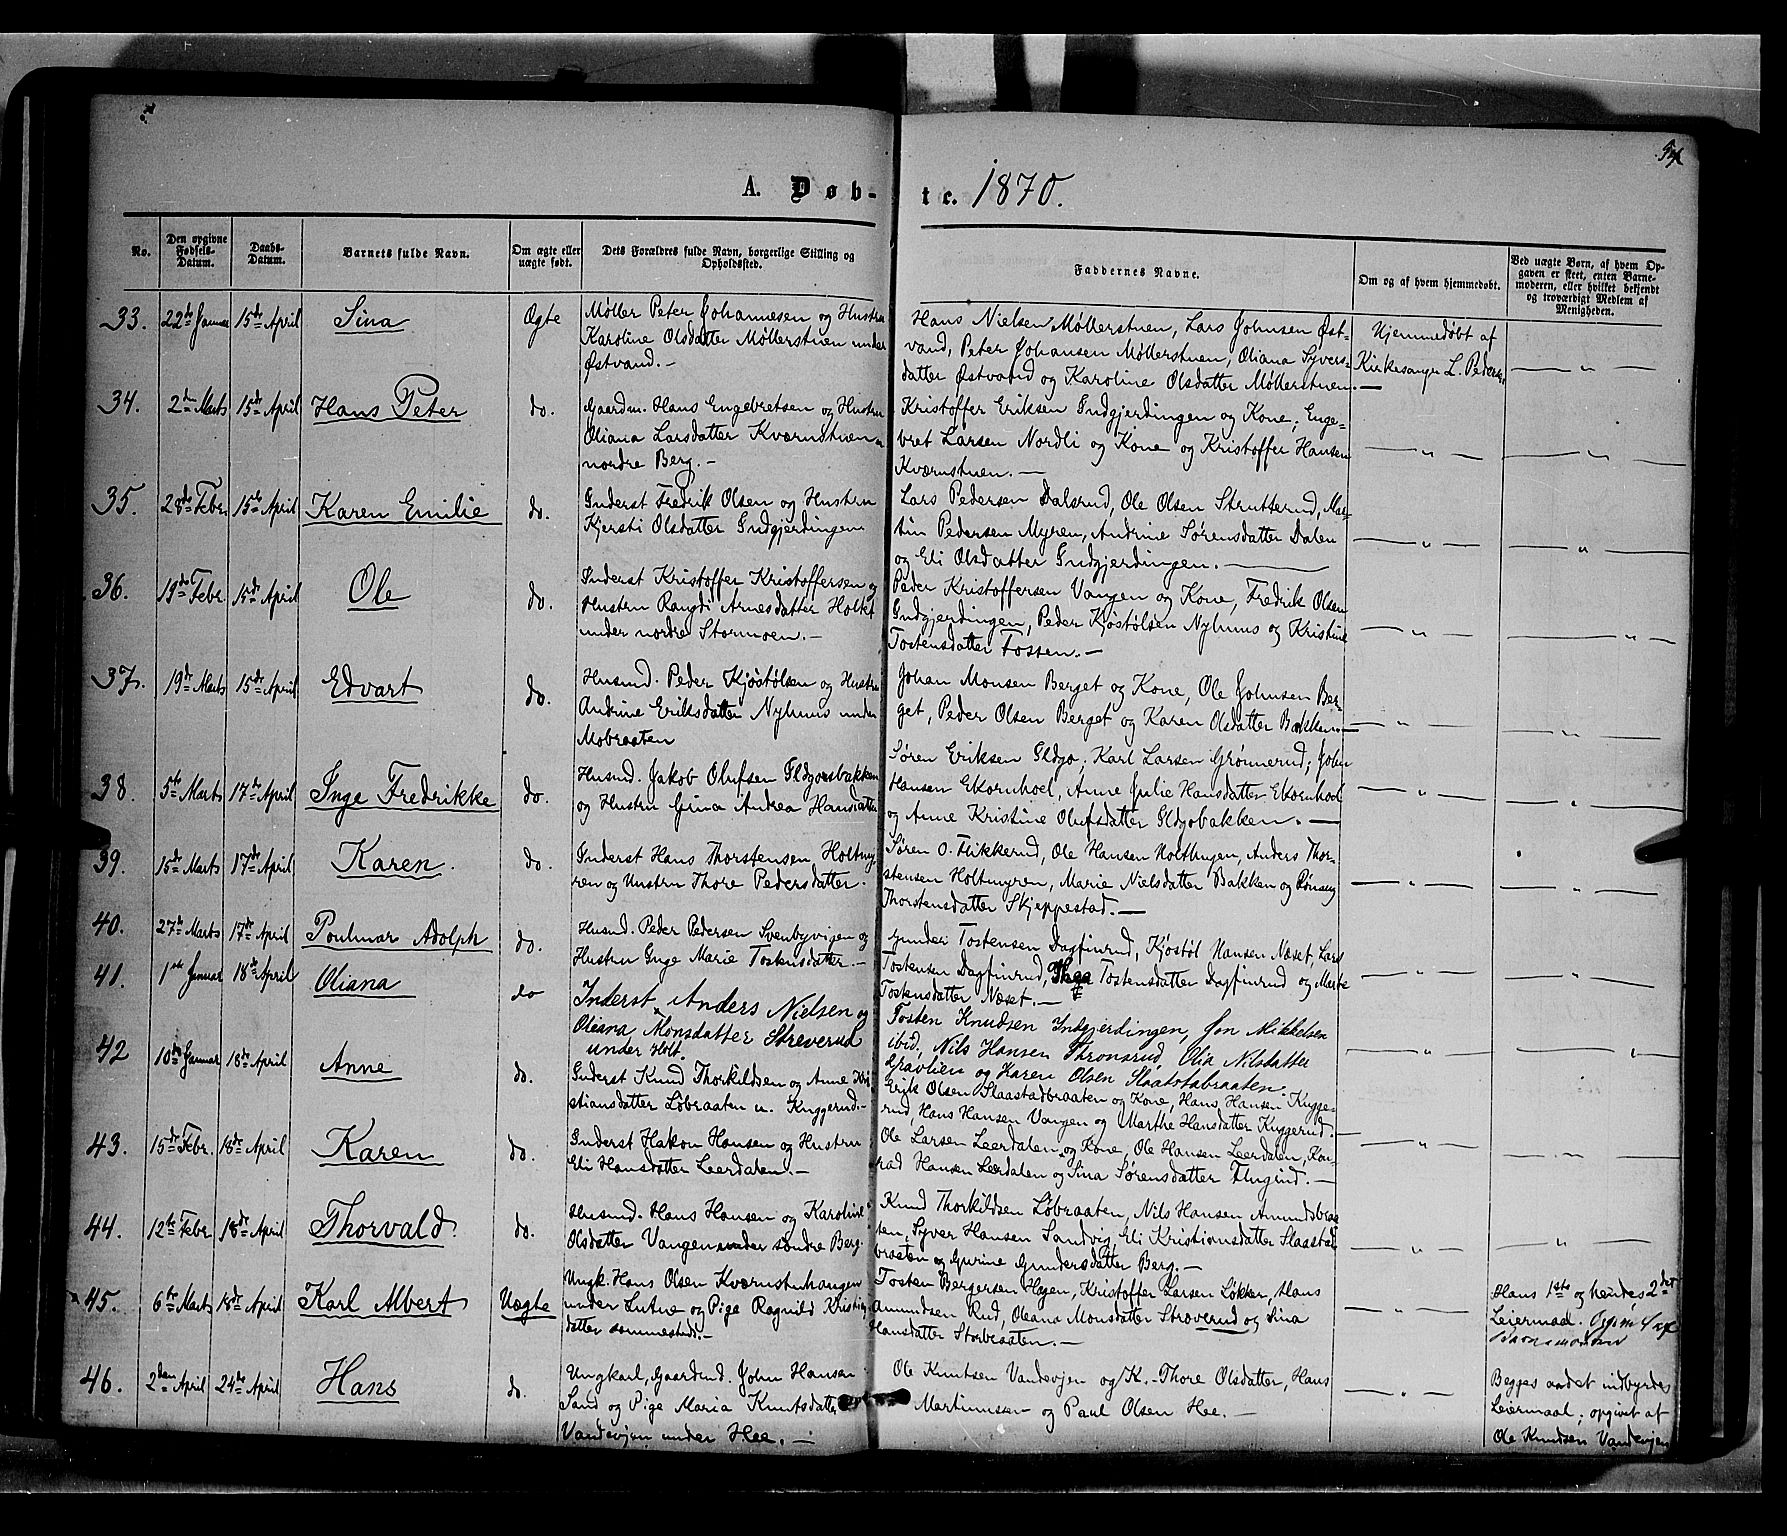 A. Døb-
te. 1870.
No.
Den opgivne Fødsels-Datum.
Daabs-Datum.
Barnets fulde Navn.
Om ægte eller uægte født.
Dets Forældres fulde Navn, borgerlige Stilling og Opholdssted.
Faddernes Navne.
Om og af hvem hjemmedøbt.
Ved uægte Børn, af hvem Opgaven er skeet, enten Barnemoderen, eller hvilket bekjendt og troværdigt Medlem af Menigheden.
33. 22de Januar 15de April Sina Ægte
Møller Peter Johannesen og Hustru
Karoline Olsdatter Møllerstuen under
Østvand. -
Hans Nielsen Møllerstuen, Lars Johnsen Øst-
vand, Peter Johansen Møllerstuen, Oliana Syvers-
datter Østvand og Karoline Olsdatter Møllerstuen. -
Hjemmedøbt af
Kirkesanger L. Peders.
34. 2den Marts 15de April Hans Peter do.
Gaardm. Hans Engebretsen og Hustru
Oliana Larsdatter Kværnstuen
nordre Berg. -
Kristoffer Eriksen Indgjerdingen og Kone, Enge-
bret Larsen Nordli og Kone og Kristoffer Hansen
Kværnstuen. -
35. 28de Febr. 15de April Karen Emilie do.
Inderst Fredrik Olsen og Hustru
Kjersti Olsdatter Indgjerdingen
Lars Pedersen Dalsrud, Ole Olsen Strutterud, Mar-
tin Pedersen Myren, Andrine Sørensdatter Dalen
og Eli Olsdatter Indgjerdingen. -
36. 19de Febr 15de April Ole do.
Inderst Kristoffer Kristoffersen og
Hustru Rangdi Arnesdatter Holte
under nordre Stormoen. -
Peder Kristoffersen Vangen og Kone, Fredrik Olsen
Indgjerdingen, Peder Kjøstølsen Nyhuus og Kristine
Tostensdatter Fossen. -
37. 19de Marts 15de April Edvart do.
Husmd. Peder Kjøstølsen og Hustru
Andrine Eriksdatter Nyhuus under
Mobraaten
Johan Monsen Berget og Kone, Ole Johnsen Ber-
get, Peder Olsen Berget og Karen Olsdatter Bakken. -
38. 5te Marts 17de April Inge Fredrikke do.
Husmd. Jakob Olufsen Eldgoesbakken
og Hustru Grina Andrea Hansdatter
Søren Eriksen Eldgo, Karl Larsen Grønnerud, John
Hansen Ekornhoel, Anne Julie Hansdatter Ekornhoel
og Anne Kristine Olufsdatter Eldgobakken. -
39. 15de Marts 17de April Karen. do.
Inderst Hans Thorstensen Holtmy-
ren og Hustru Thore Pedersdatter.
Søren O. Flikkerud, Ole Hansen Holthugen, Anders Thor-
stensen Holtmyren, Marie Nielsdatter Bakken og Rønnaug
Thorstensdatter Skjeppestad. -
40. 27de Marts 17de April Poulmar Adolph do.
Husmd. Peder Pedersen Svenbyvigen og
Hustru Inge Marie Tostensdatter. -
Gunder Tostensen Dagfinrud, Kjøstøl Hansen Næset, Lars
Tostensen Dagfinrud, Thea Tostensdatter Dagfinrud og Marte
Tostensdatter Næset. -
41. 1ste Januar 18de April Oliana do
Inderst Anders Nielsen og
Oliana Monsdatter Streverud
under Holt.
Tosten Knudsen Indgjerdingen, Jon Mikkelsen
ibid., Nils Hansen Thronsrud, Olia Nilsdatter
Gravlien og Karen Olsen Slaatstabraaten.
42 10de Januar 18de April Anne do.
Inderst Knud Thorkildsen og Anne Kri-
stiansdatter Løbraaten u. Kuggerud. -
Erik Olsen Slaastadbraaten og Kone, Hans Hansen Kugge-
rud, Hans Hansen Vangen og Marthe Hansdatter Kuggerud. -
43. 15de Febr. 18de April Karen do.
Inderst Hakon Hansen og Hustru
Eli Hansdatter Leerdalen. -
Ole Larsen Leerdalen og Kone, Ole Hansen Leerdalen, Kon-
rad Hansen Leerdalen og Sina Sørensdatter Flugind. -
44. 12te Febr. 18de April Thorvald. do.
Husmd. Hans Hansen og Karoline
Olsdatter Vangen under søndre Berg.
Knud Thorkildsen Løbraaten, Nils Hansen Amundsbraa-
ten, Syver Hansen Sandvig, Eli Kristiansdatter Slaastad-
braaten og Gurine Gundersdatter Berg. -
45. 6te Marts 18de April Karl Albert Uægte
Ungk. Hans Olsen Kværnstuhaugen
under Lutne og Pige Ragnild Kristians-
datter sammested. -
Tosten Bergersen Hagen, Kristoffer Larsen Løkken, Hans
Amundsen Rud, Oleana Monsdatter Streverud og Sina
Hansdatter Storbraaten. -
Hans 1ste og hendes 2det
Leiermaal.
Barnemoderen
46. 2den April 24de April Hans do.
Ungkarl, Gaardmd. John Hansen
Sand og Pige Maria Knutsdatter
Vandevjen under Hee. -
Ole Knutsen Vandevjen og K. - Thore Olsdatter, Hans
Martinusen og Paul Olsen Hee. -
Begges andet indbyrdes
Leiermaal; opgivet af
Ole Knudsen Vandevjen